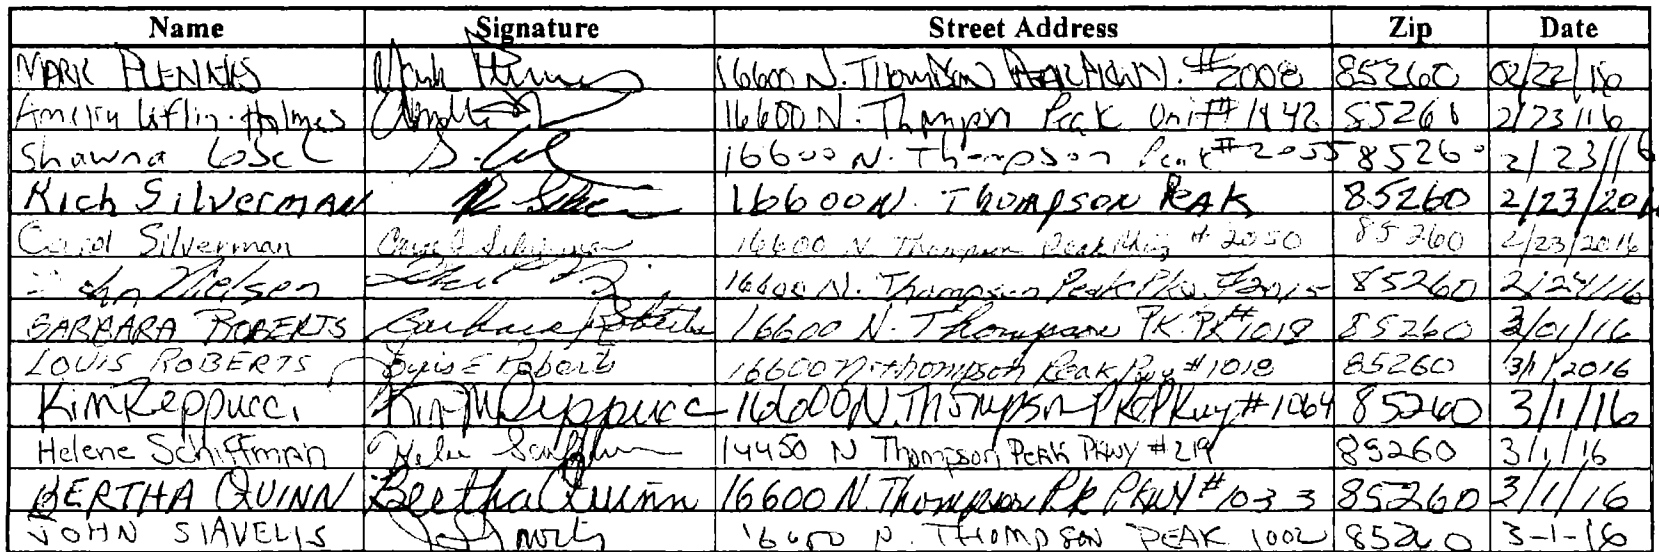 Name Signature Street Address Zip Date
MARK 16600 N. #2008 85260 02/22/16
Holmes 16600 N. Thompson Peak Unit# 1442 2/23/16
Shawna 16600 N. Thompson Peak #2055 85260 2/23/16
Rich Silverman 16600 N. THOMPSON PEAK 85260 2/23/2016
Carol Silverman Carol Silverman 16600 N Thompson Peak Pkwy # 2050 85260 2/23/2016
Nielsen 16600 N. Thompson Peak Pkw. #2015 85260 2/24/16
BARBARA ROBERTS Barbara Roberts 16600 N. Thompson PK. PK #1018 85260 3/01/16
LOUIS ROBERTS Louis E Roberts 16600 N. thompson Peak Pkwy #1018 85260 3/1/2016
Kim Reppucci Kim M Reppucci 16600 N. Thompson Pk Pkwy #1064 85260 3/1/16
Helene Schiffman Helene Schiffman 14450 N Thompson Peak Pkwy #219 85260 3/1/16
BERTHA QUINN Bertha Quinn 16600 N. Thompson Pk PKWY #1033 85260 3/1/16
JOHN SIAVELIS 16600 N. THOMPSON PEAK 1002 85260 3-1-16